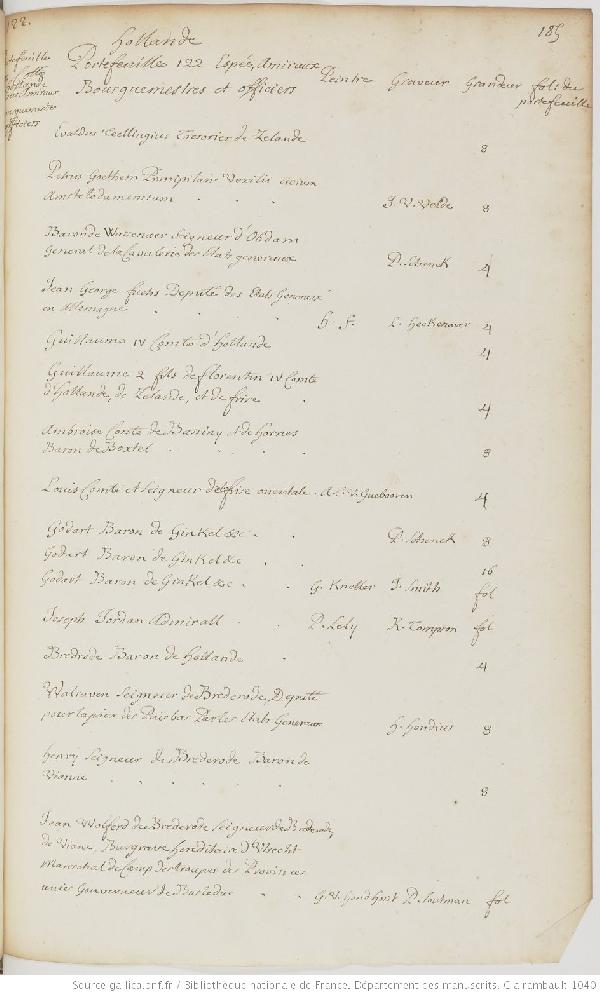 122.
185
Hollande
Portefeuille 122 Espée, Amiraux
Bourguemestres et officiers
Peintre Graveur Grandeur fol. du
portefeuille
Evaldus Teellingius Tresorier de Zelande 8
Petrus Primipilaris Vexilli civium
Amstelodamensium J. V. Velde 8
Baron de Seigneur d'Obdam
General de la Cavalerie des Etats generaux P. Schenck 4
Jean George fuchs Deputé des Etats Generaux
en Allemagne h. f. L. Heckenauer 4
Guillaume IV Comte d'hollande 4
Guillaume 2 fils de florentin IV Comte
d'hollande, de Zelande, et de frise 4
Ambroise Comte de et de hornes
Baron de Boxtel 8
Louis Comte et Seigneur de frise orientale 4
Godart Baron de Ginkel &c P. Schenck 8
Godart Baron de Ginkel &c 16
Godert Baron de Ginkel &c G. Kneller J. Smith fol
Joseph Jordan Admirall P. Lely R. Tompson fol
Bredrode Baron de hollande 4
Walraven Seigneur de Brederode, Deputé
pour la paix des Pais bas Par les Etats Generaux H. Hondius 8
henry Seigneur de Brederode Baron de
Vianne 8
Jean Wolferd de Brederode Seigneur de Brederode,
de Viane, Burgrave hereditaire d'Utrecht
Mareschal de Camp des troupes des Provinces
unies Gouverneur de Bosleduc G. V. hondhorst P. Soutman fol
Source gallica.bnf.fr / Bibliothèque nationale de France. Département des manuscrits. Clairambault 1040